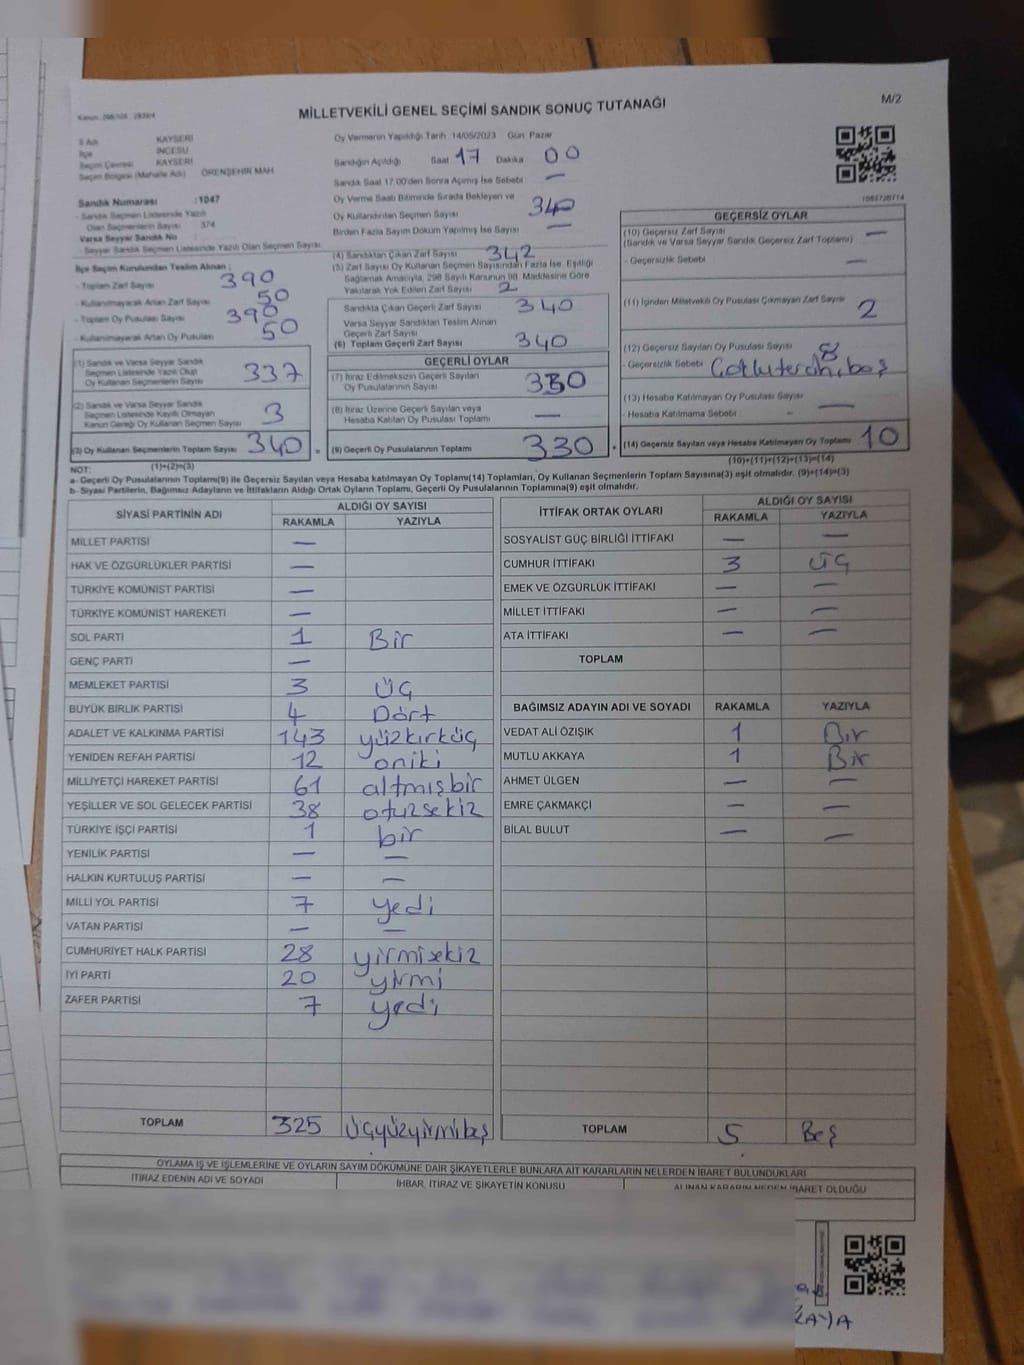 M/2
MİLLETVEKİLİ GENEL SEÇİMİ SANDIK SONUÇ TUTANAĞI
İl Adı KAYSERİ
İlçe İNCESU
Seçim Çevresi KAYSERİ
Seçim Bölgesi (Mahalle Adı) ÖRENŞEHİR MAH.
Sandık Numarası : 1047
- Sandık Seçmen Listesinde Yazılı
Olan Seçmenlerin Sayısı 374
Varsa Seyyar Sandık No
- Seyyar Sandık Seçmen Listesinde Yazılı Olan Seçmen Sayısı
Oy Vermenin Yapıldığı Tarih 14/05/2023 Gün Pazar
Sandığın Açıldığı Saat 17 Dakika 00
Sandık Saat 17.00'den Sonra Açılmış İse Sebebi —
Oy Verme Saati Bitiminde Sırada Bekleyen ve
Oy Kullandırılan Seçmen Sayısı 340
Birden Fazla Sayım Döküm Yapılmış İse Sayısı —
İlçe Seçim Kurulundan Teslim Alınan :
- Toplam Zarf Sayısı 390
- Kullanılmayacak Artan Zarf Sayısı 50
- Toplam Oy Pusulası Sayısı 390
- Kullanılmayacak Artan Oy Pusulası 50
(1) Sandık ve Varsa Seyyar Sandık
Seçmen Listesinde Yazılı Olup
Oy Kullanan Seçmenlerin Sayısı 337
(2) Sandık ve Varsa Seyyar Sandık
Seçmen Listesinde Kayıtlı Olmayan
Kanun Gereği Oy Kullanan Seçmen Sayısı 3
(3) Oy Kullanan Seçmenlerin Toplam Sayısı 340
(1)+(2)=(3)
(4) Sandıktan Çıkan Zarf Sayısı 342
(5) Zarf Sayısı Oy Kullanan Seçmen Sayısından Fazla İse, Eşitliği
Sağlamak Amacıyla, 298 Sayılı Kanunun 98. Maddesine Göre
Yakılarak Yok Edilen Zarf Sayısı 2
Sandıkta Çıkan Geçerli Zarf Sayısı 340
Varsa Seyyar Sandıktan Teslim Alınan
Geçerli Zarf Sayısı
(6) Toplam Geçerli Zarf Sayısı 340
GEÇERLİ OYLAR
(7) İtiraz Edilmeksizin Geçerli Sayılan
Oy Pusulalarının Sayısı 330
(8) İtiraz Üzerine Geçerli Sayılan veya
Hesaba Katılan Oy Pusulası Toplamı —
(9) Geçerli Oy Pusulalarının Toplamı 330
GEÇERSİZ OYLAR
(10) Geçersiz Zarf Sayısı —
(Sandık ve Varsa Seyyar Sandık Geçersiz Zarf Toplamı)
- Geçersizlik Sebebi —
(11) İçinden Milletvekili Oy Pusulası Çıkmayan Zarf Sayısı 2
(12) Geçersiz Sayılan Oy Pusulası Sayısı 8
- Geçersizlik Sebebi
(13) Hesaba Katılmayan Oy Pusulası Sayısı —
- Hesaba Katılmama Sebebi -
(14) Geçersiz Sayılan veya Hesaba Katılmayan Oy Toplamı 10
(10)+(11)+(12)+(13)=(14)
NOT:
a- Geçerli Oy Pusulalarının Toplamı(9) ile Geçersiz Sayılan veya Hesaba katılmayan Oy Toplamı(14) Toplamları, Oy Kullanan Seçmenlerin Toplam Sayısına(3) eşit olmalıdır. (9)+(14)=(3)
b- Siyasi Partilerin, Bağımsız Adayların ve İttifakların Aldığı Ortak Oyların Toplamı, Geçerli Oy Pusulalarının Toplamına(9) eşit olmalıdır.
SİYASİ PARTİNİN ADI ALDIĞI OY SAYISI
RAKAMLA YAZIYLA
MİLLET PARTİSİ —
HAK VE ÖZGÜRLÜKLER PARTİSİ —
TÜRKİYE KOMÜNİST PARTİSİ —
TÜRKİYE KOMÜNİST HAREKETİ —
SOL PARTİ 1 Bir
GENÇ PARTİ —
MEMLEKET PARTİSİ 3 üç
BÜYÜK BİRLİK PARTİSİ 4 Dört
ADALET VE KALKINMA PARTİSİ 143 yüzkırküç
YENİDEN REFAH PARTİSİ 12 oniki
MİLLİYETÇİ HAREKET PARTİSİ 61 altmışbir
YEŞİLLER VE SOL GELECEK PARTİSİ 38 otuzsekiz
TÜRKİYE İŞÇİ PARTİSİ 1 bir
YENİLİK PARTİSİ — —
HALKIN KURTULUŞ PARTİSİ — —
MİLLİ YOL PARTİSİ 7 yedi
VATAN PARTİSİ — —
CUMHURİYET HALK PARTİSİ 28 yirmisekiz
İYİ PARTİ 20 yirmi
ZAFER PARTİSİ 7 yedi
TOPLAM 325 üçyüzyirmibeş
İTTİFAK ORTAK OYLARI ALDIĞI OY SAYISI
RAKAMLA YAZIYLA
SOSYALİST GÜÇ BİRLİĞİ İTTİFAKI — —
CUMHUR İTTİFAKI 3 üç
EMEK VE ÖZGÜRLÜK İTTİFAKI — —
MİLLET İTTİFAKI — —
ATA İTTİFAKI — —
TOPLAM
BAĞIMSIZ ADAYIN ADI VE SOYADI RAKAMLA YAZIYLA
VEDAT ALİ ÖZIŞIK 1 Bir
MUTLU AKKAYA 1 Bir
AHMET ÜLGEN — —
EMRE ÇAKMAKÇİ — —
BİLAL BULUT — —
TOPLAM 5 Beş
OYLAMA İŞ VE İŞLEMLERİNE VE OYLARIN SAYIM DÖKÜMÜNE DAİR ŞİKAYETLERLE BUNLARA AİT KARARLARIN NELERDEN İBARET BULUNDUKLARI
İTİRAZ EDENİN ADI VE SOYADI İHBAR, İTİRAZ VE ŞİKAYETİN KONUSU ALINAN KARARIN NEDEN İBARET OLDUĞU